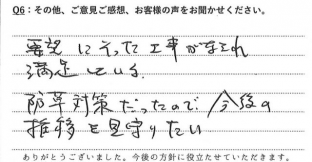 Q6：その他、ご意見ご感想、お客様の声をお聞かせください。
要望にそった工事がなされ
満足している。
防草対策だったので今後の
推移を見守りたい
ありがとうございました。今後の方針に役立たせていただきます。